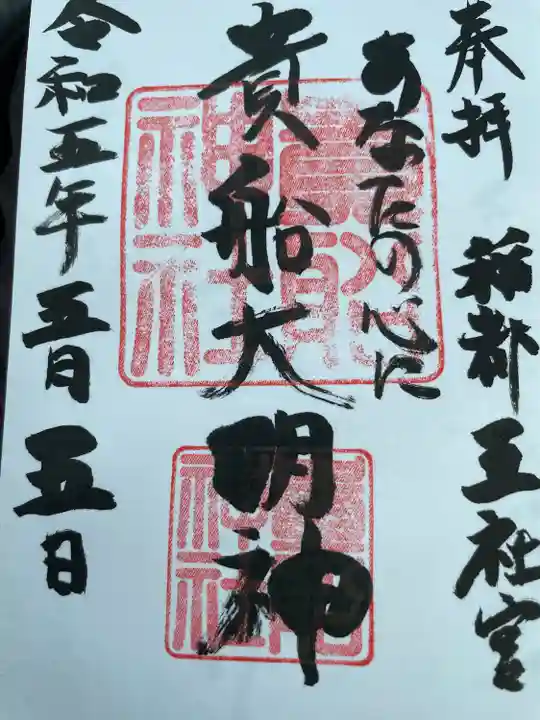 奉拝 稲都 三社宮
あなたの心に
貴船大明神
令和五年五月五日
貴船神社